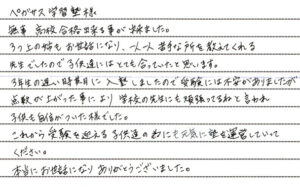 ペガサス学習塾様
無事 高校合格出来る事が出来ました。
3つ上の姉もお世話になり、一人一人苦手な所を教えてくれる
先生でしたので子供達にはとても合っていたと思います。
3年生の遅い時期に入塾しましたので受験には不安がありましたが
点数が上がった事により学校の先生にも頑張ってるねと言われ
子供も自信がついた様でした。
これから受験を迎える子供達の為にも元気に塾を運営していて
ください。
本当にお世話になりありがとうございました。